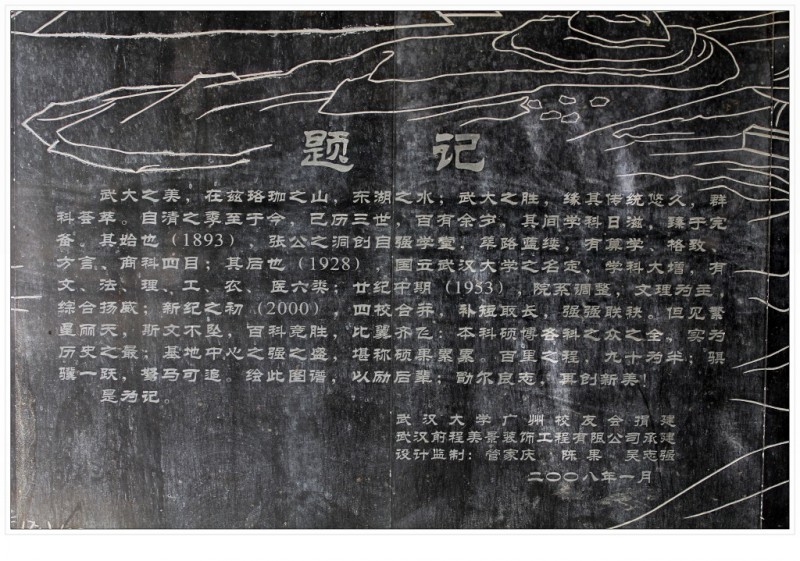 题 记
武大之美，在兹珞珈之山，东湖之水；武大之胜，缘其传统悠久，群
科荟萃。自清之季至于今，已历三世，百有余岁，其间学科日滋，臻于完
备。其始也（1893），张公之洞创自强学堂，筚路蓝缕，有算学、格致、
方言、商科四目；其后也（1928），国立武汉大学之名定，学科大增，有
文、法、理、工、农、医六类；廿纪中期（1953），院系调整，文理为主，
综合扬威；新纪之初（2000），四校合并，补短取长，强强联袂。但见繁
星丽天，斯文不坠，百科竞胜，比翼齐飞：本科硕博各科之众之全，实为
历史之最；基地中心之强之盛，堪称硕果累累。百里之程，九十为半；骐
骥一跃，驽马可追。绘此图谱，以励后辈；勖尔良志，再创新美！
是为记。
武汉大学广州校友会捐建
武汉前程美景装饰工程有限公司承建
设计监制：管家庆 陈果 吴志强
二〇〇八年一月